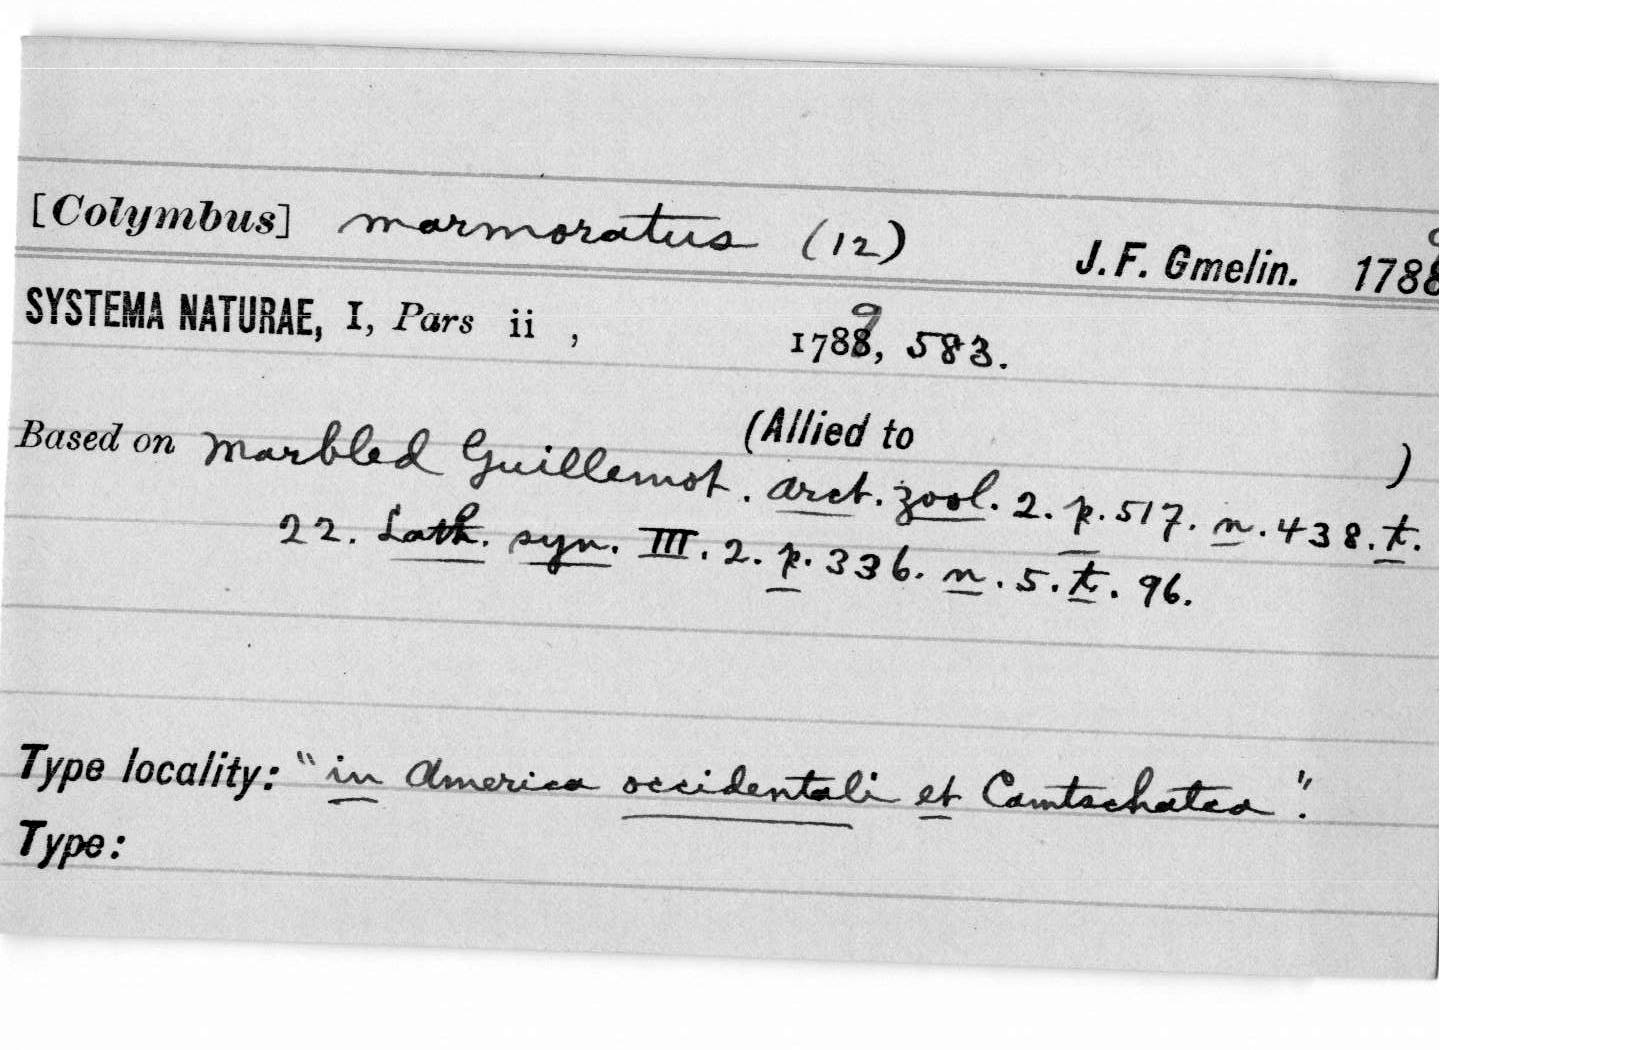 [Colymbus] marmoratus (12) J. F. Gmelin. 1788
SYSTEMA NATURAE, I, Pars ii , 1789, 583.
(Allied to )
Based on Marbled Guillemot. Arct. zool. 2. p. 517. n. 438. t.
22. Lath. syn. III. 2. p. 336. n. 5. t. 96.
Type locality: "in America occidentali et Camtschatca".
Type: